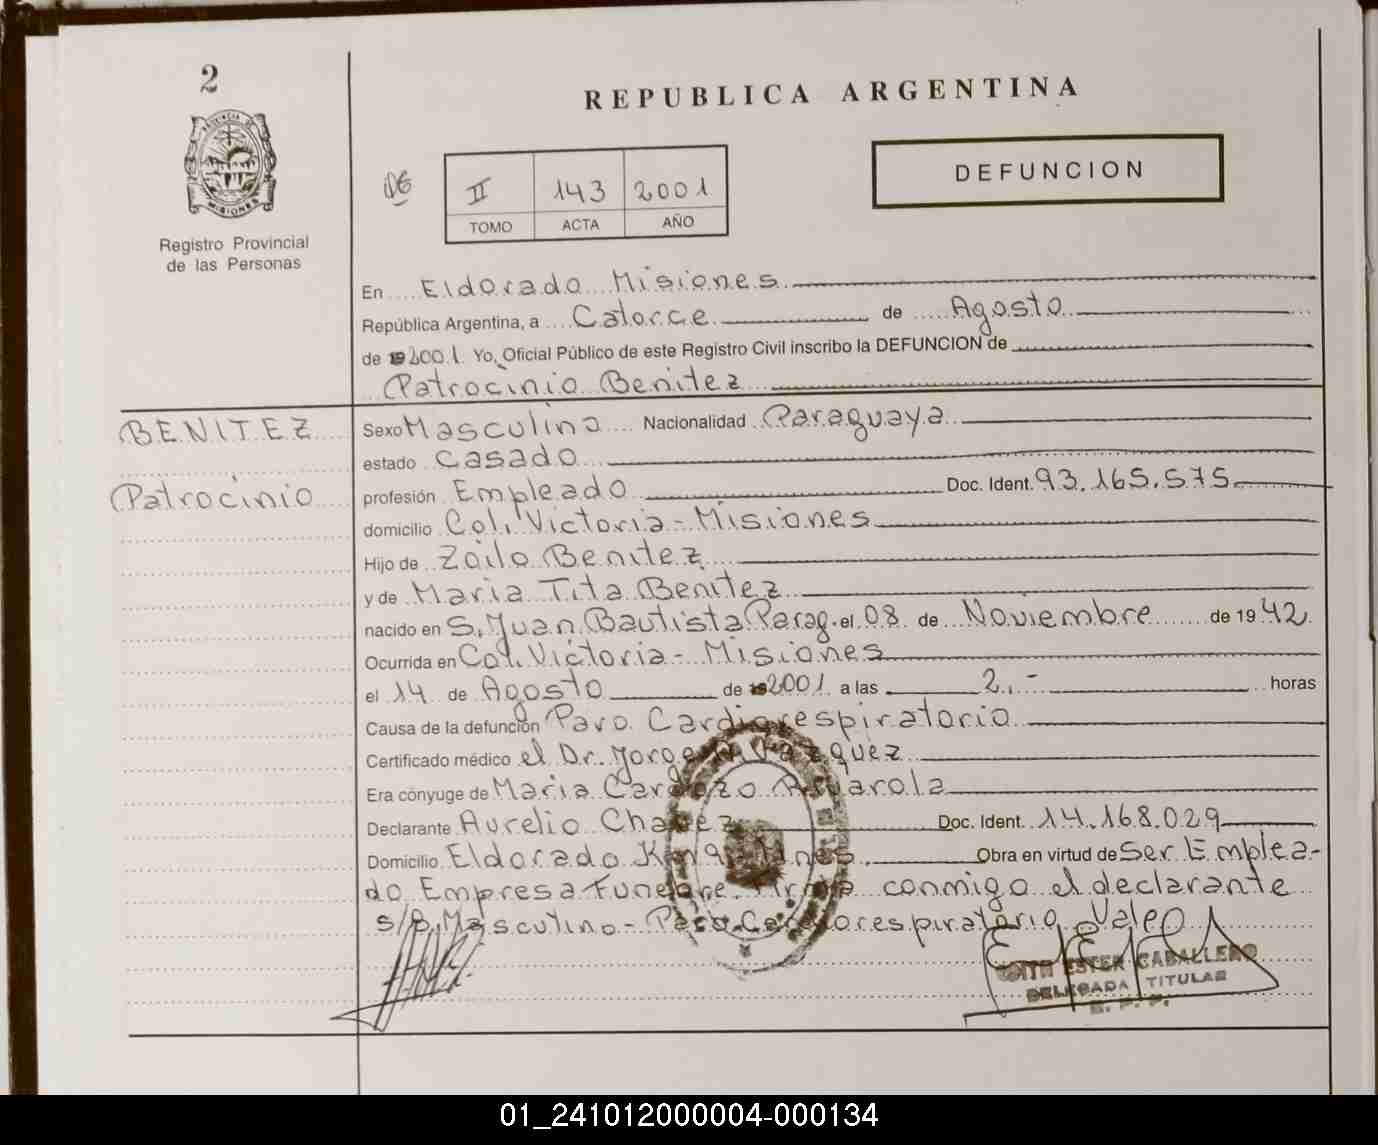 2
REPUBLICA ARGENTINA
PROVINCIA DE
MISIONES
Registro Provincial
de las Personas
II 143 2001
TOMO ACTA AÑO
DEFUNCION
En Eldorado Misiones
República Argentina, a Catorce de Agosto
de 2001. Yo, Oficial Público de este Registro Civil inscribo la DEFUNCION de
Patrocinio Benitez
BENITEZ
Patrocinio
Sexo Masculino Nacionalidad Paraguaya
estado Casado
profesión Empleado Doc. Ident. 93.165.575
domicilio Col. Victoria - Misiones
Hijo de Zoilo Benitez
y de Maria Tita Benitez
nacido en S. Juan Bautista Parag. el 08 de Noviembre de 1942.
Ocurrida en Col. Victoria - Misiones
el 14 de Agosto de 2001. a las 2,- horas
Causa de la defunción Paro Cardiorespiratorio
Certificado médico el Dr. Jorge Vazquez
Era cónyuge de Maria Cardozo
Declarante Aurelio Chavez Doc. Ident. 14.168.029
Domicilio Eldorado Km 9 Mnes. Obra en virtud de Ser Emplea-
do Empresa Funebre. Firma conmigo el declarante
s/B. Masculino - Paro Cardiorespiratorio Valen
EDITH ESTER CABALLERO
DELEGADA TITULAR
01_241012000004-000134